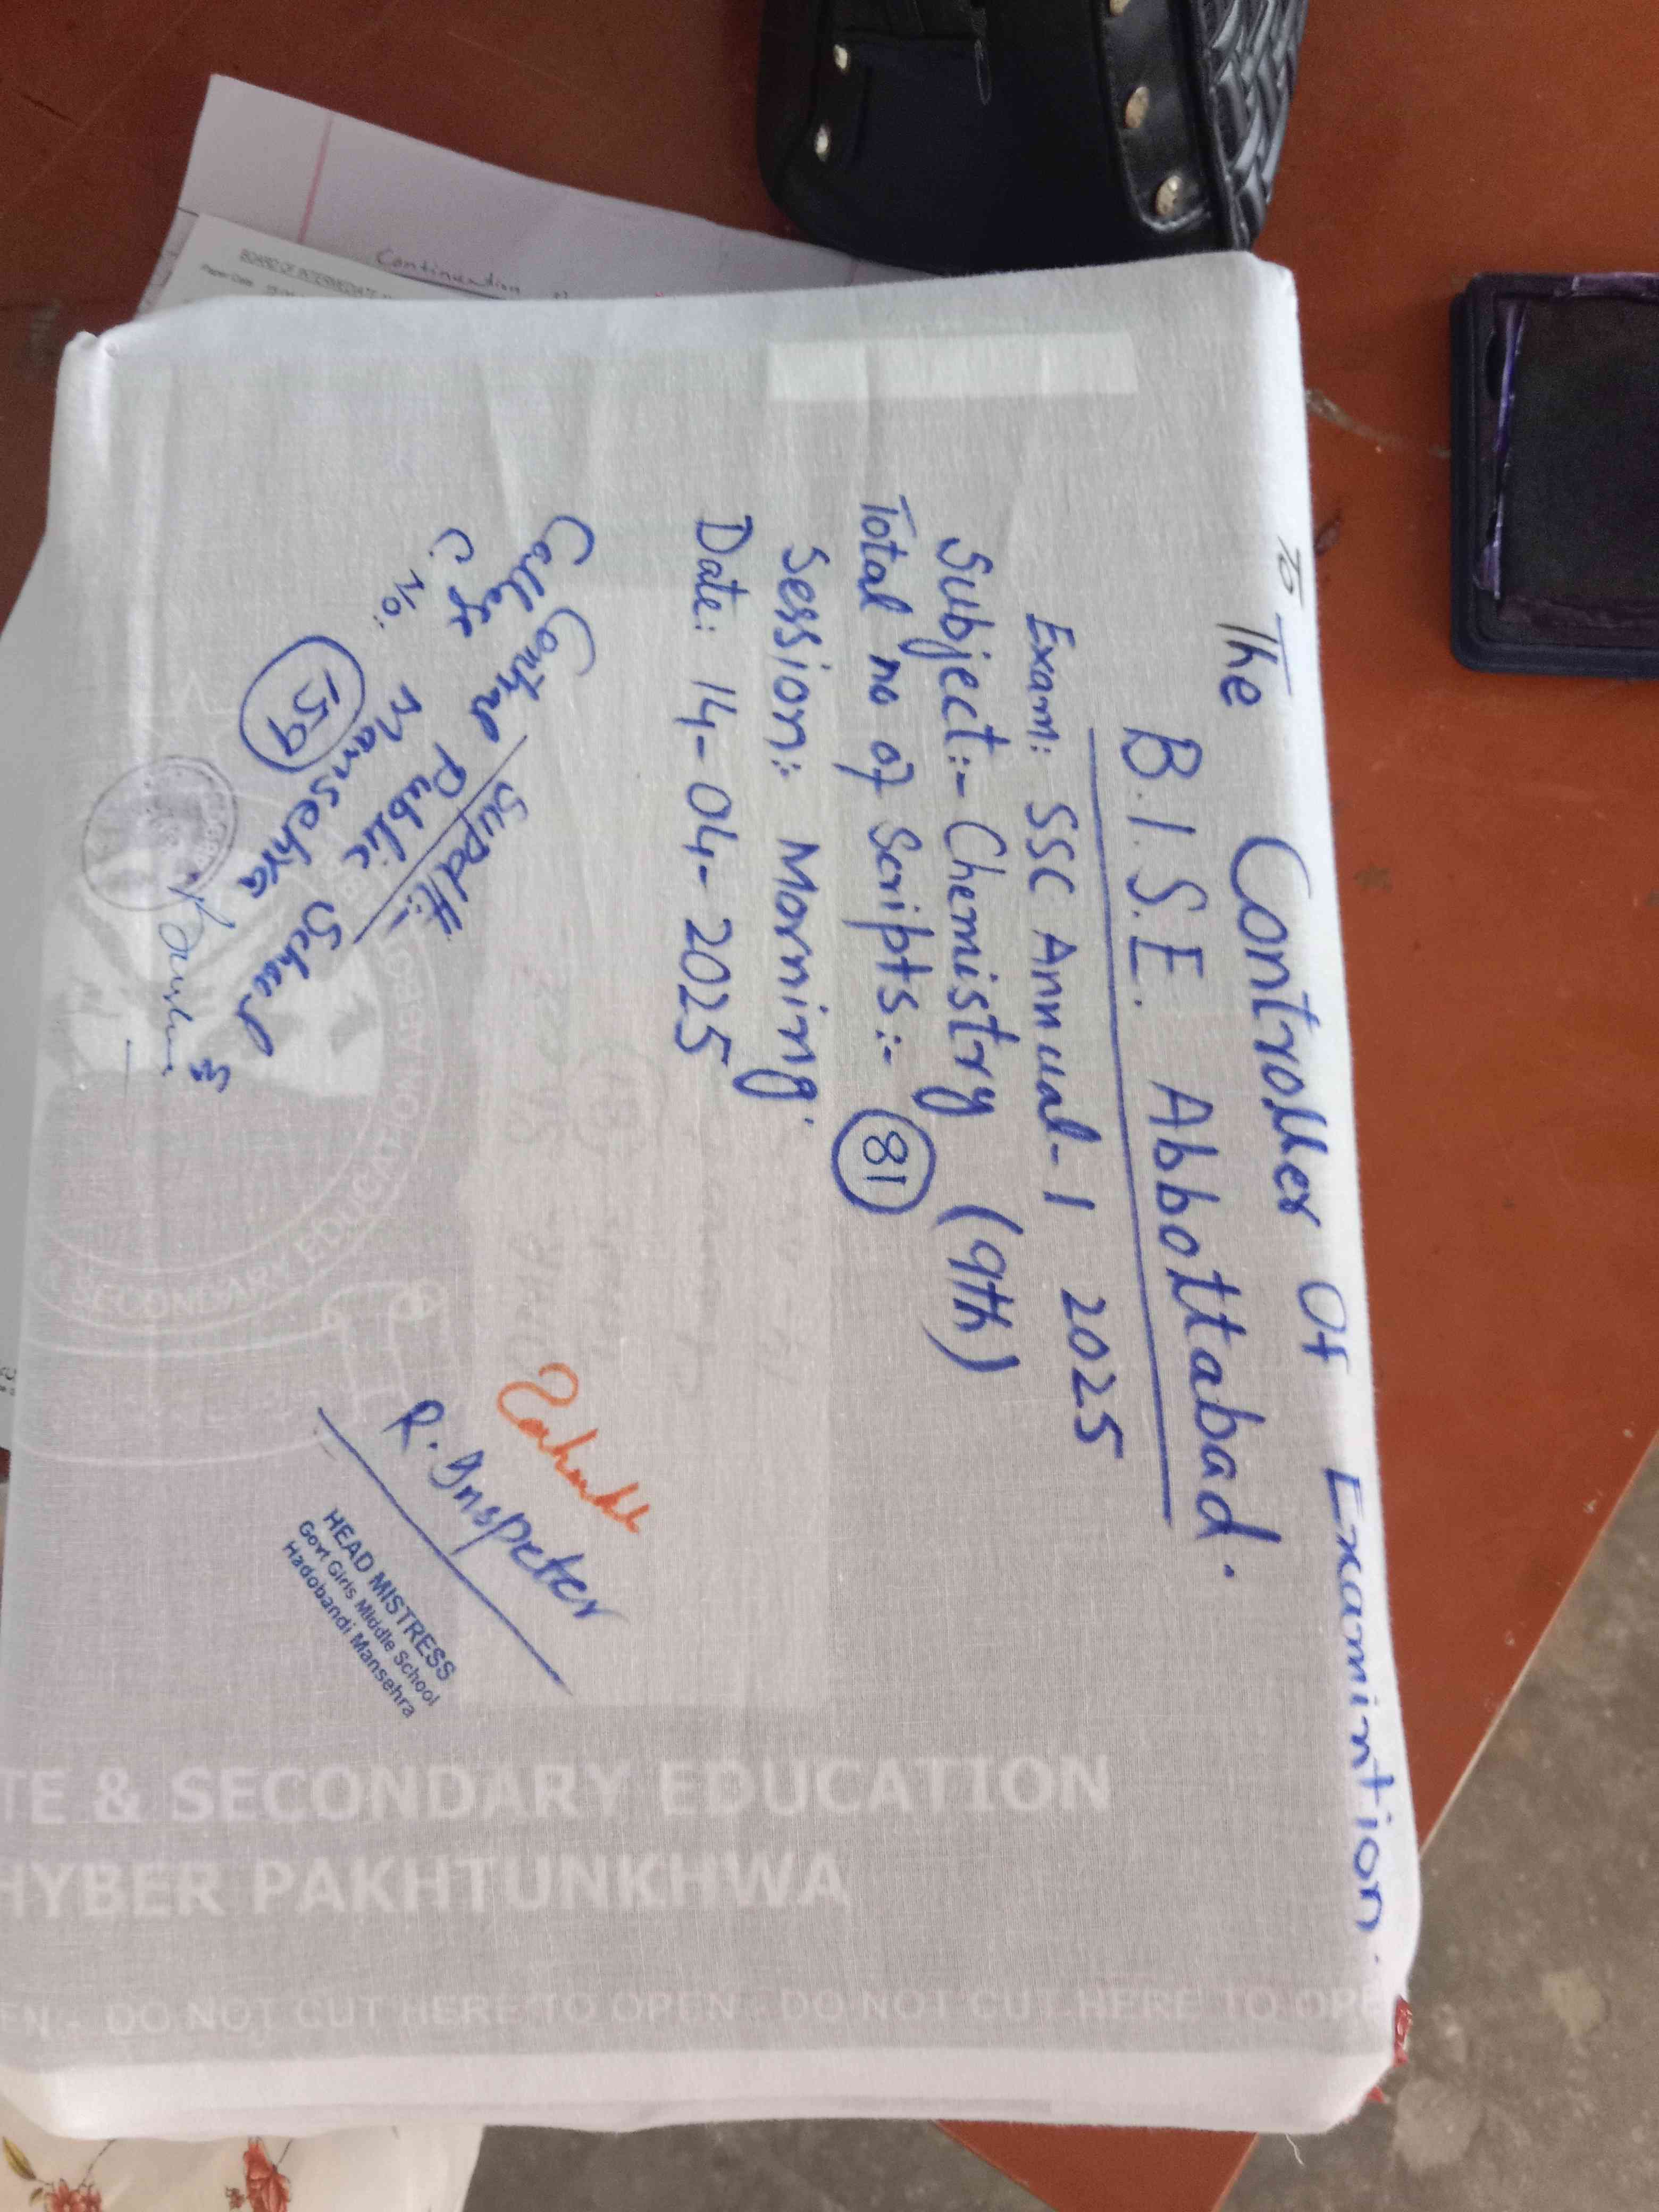 To
The Controller Of Examintion.
B.I.S.E. Abbottabad.
Exam: SSC Annual-1 2025
Subject:- Chemistry (9th)
Total no of Scripts:- 81
Session:- Morning.
Date: 14-04-2025
Supdtt:-
Central Public School &
College Mansehra
C. No: 159
R. Inspeter
HEAD MISTRESS
Govt Girls Middle School
Hadobandi Mansehra
SECONDARY EDUCATION
TE & SECONDARY EDUCATION
HYBER PAKHTUNKHWA
EN - DO NOT CUT HERE TO OPEN - DO NOT CUT HERE TO OPE
Continuation
BOARD OF INTERMEDIATE
Paper Date